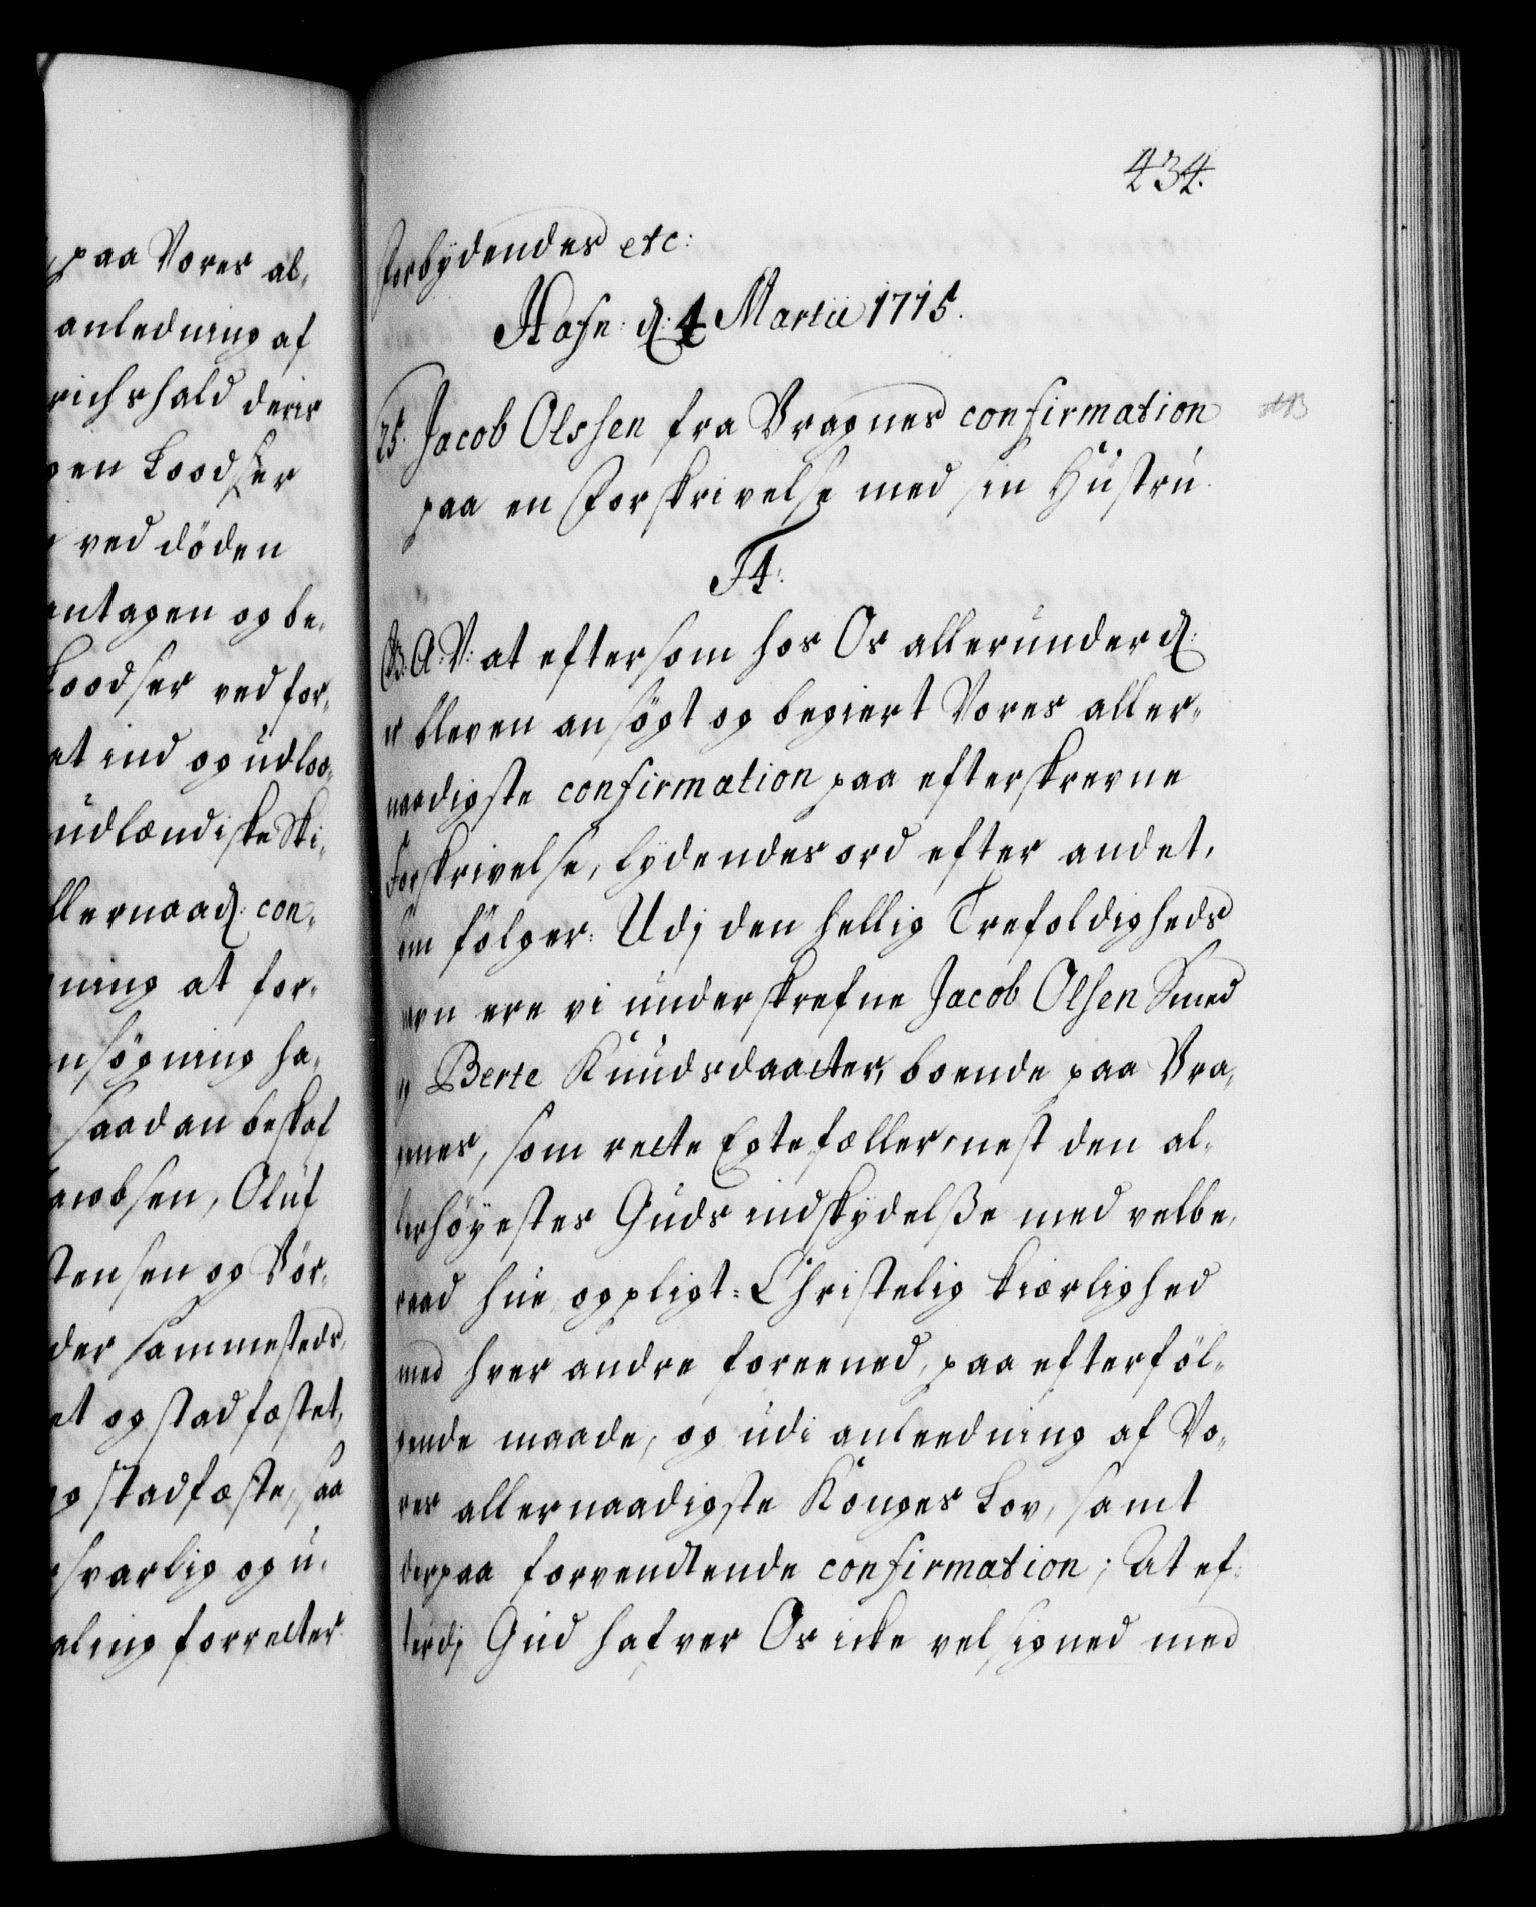 434.
paa Vores al„
anledning af
richshald deris
gen Loodser
ved döden
antagen og be„
Loodser ved for„
et ind og udloo„
udlændiske Ski„
llernaad: con„
ning at for„
nsögning ha„
saadan beskaf
acobsen, Oluf
tensen og Vör„
der sammesteds,
et og stadfæstet,
og stadfæste, saa
svarlig og u„
aling forretter
forbydendes etc:
Hafn: d: 4 Martii 1715.
25. Jacob Olssen fra Vragnes confirmation
paa en Forskrivelse med sin Hustru.
F4:
G. A. V: at eftersom hos Os allerunderd:
er bleven ansögt og begiert Vores aller„
naadigste confirmation paa efterskrevne
Forskrivelse, lydendes ord efter andet,
som fölger: Udj den hellig Trefoldigheds
nafn ere vi underskrefne Jacob Olsen Smed
og Berte Knudsdaatter, boende paa Vra„
gnes, som rette Egtefæller, nest den al„
lerhöyestes Guds indskydelße med velbe„
raad hue og pligt: Christelig kiærlighed
med hver andre foreened, paa efterföl„
gende maade, og udi anleedning af Vo„
res allernaadigste Konges Lov, samt
derpaa forventende confirmation; At ef„
terdj Gud hafver Os icke velsigned med